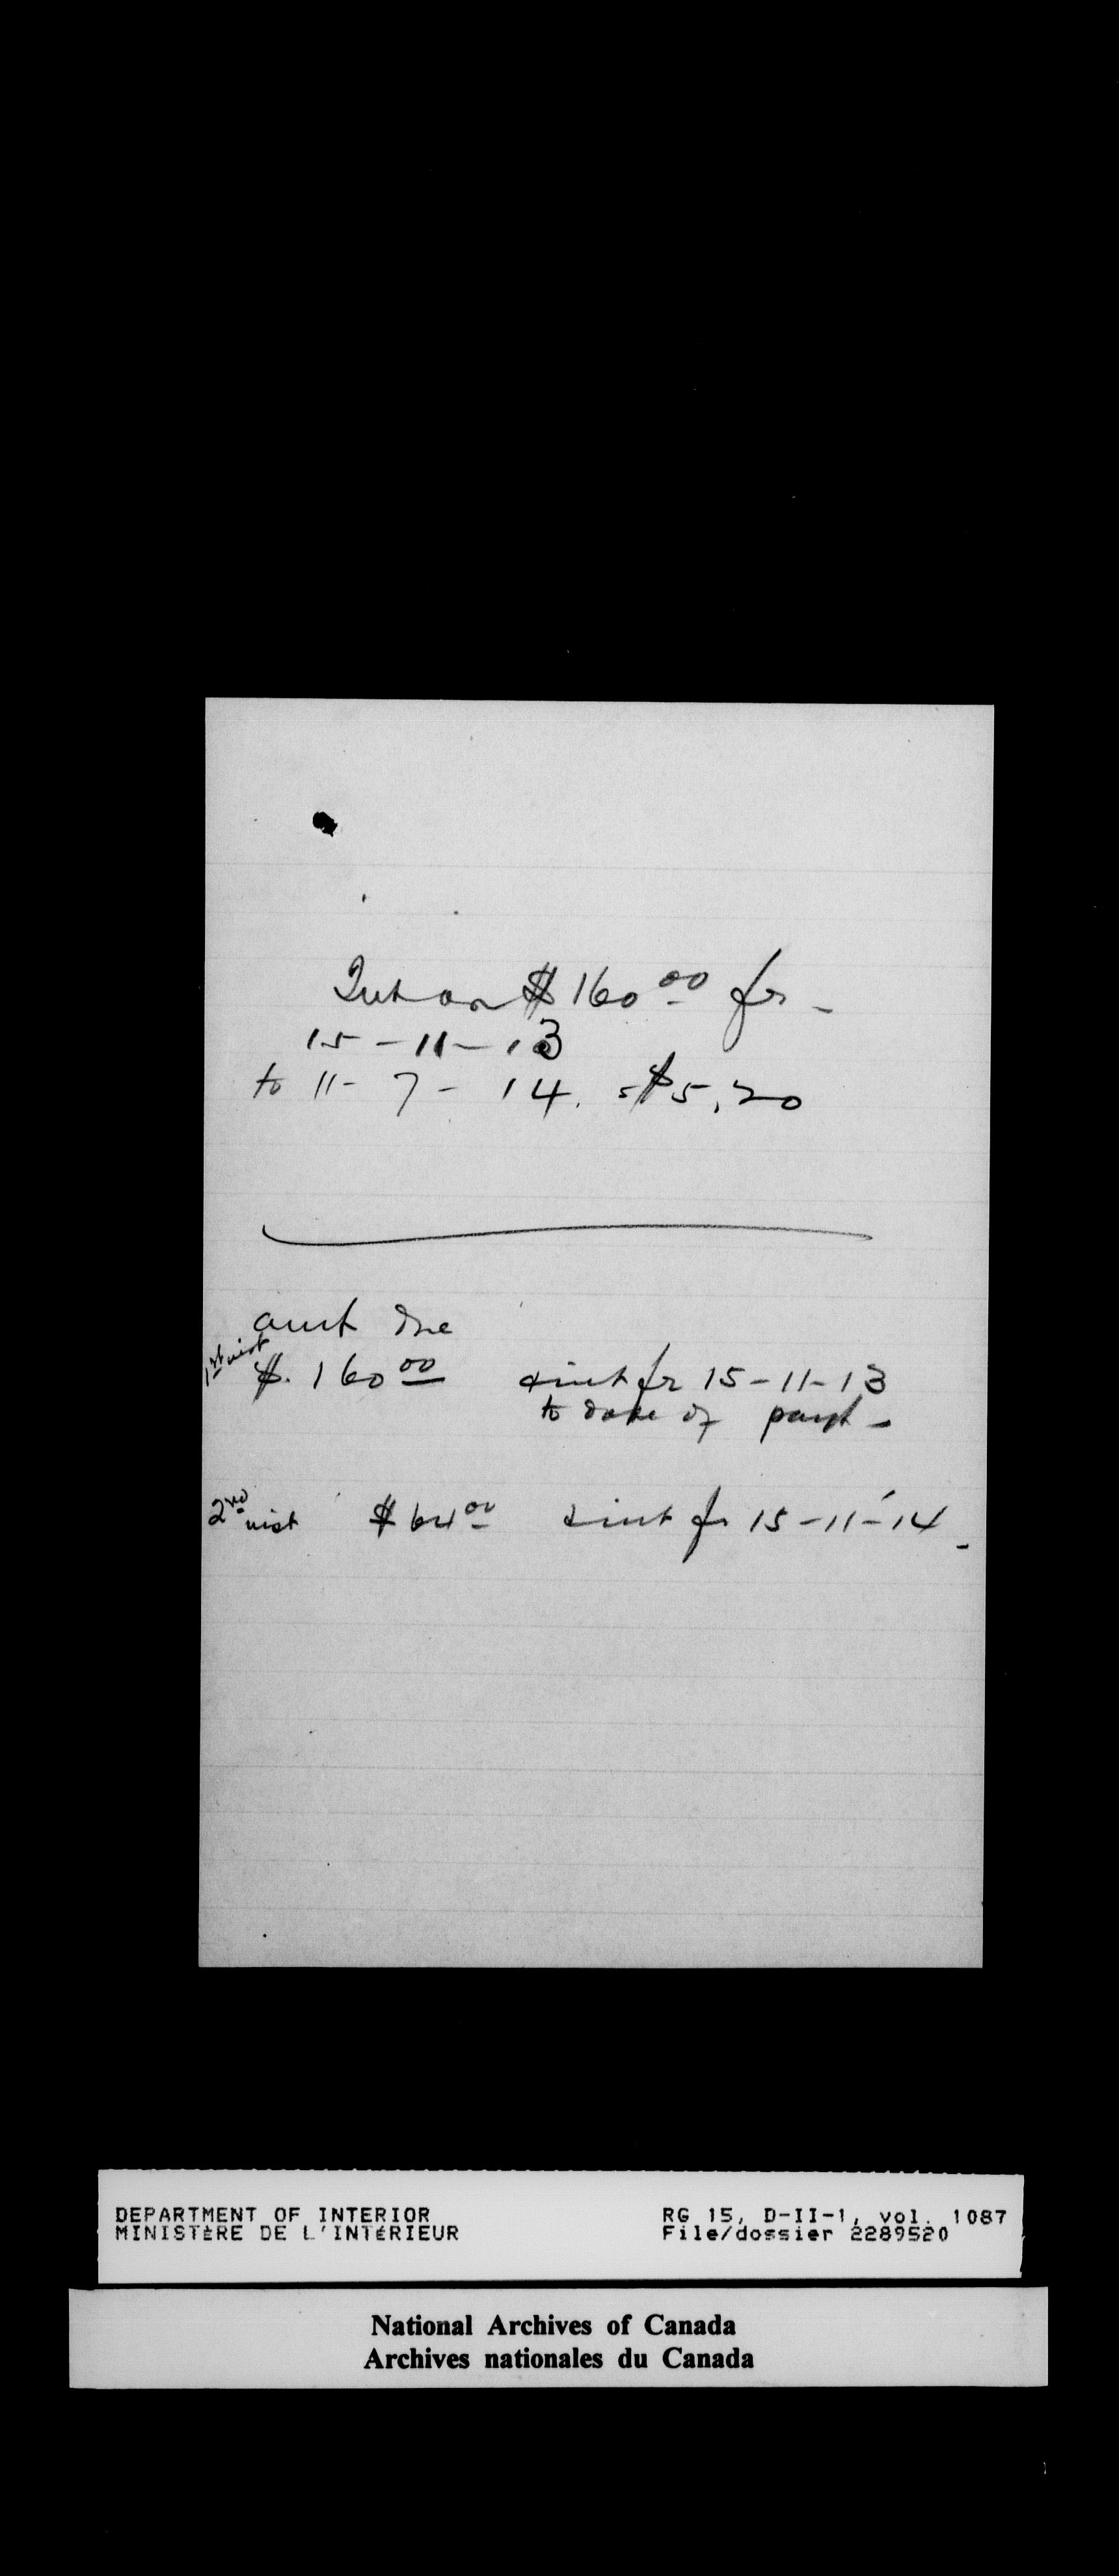 Int on $160.00 fr -
15-11-13
to 11-7-14. = $5.20
amt due
1st inst
$.160.00 & int fr 15-11-13
to date of paymt -
2nd inst $64.00 & int fr 15-11-14
DEPARTMENT OF INTERIOR
MINISTÈRE DE L'INTÉRIEUR
RG 15, D-II-1, vol. 1087
File/dossier 2289520
National Archives of Canada
Archives nationales du Canada